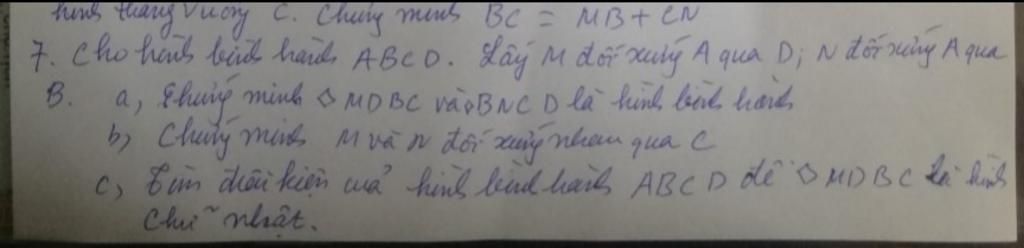 hình thang vuông c. Chứng minh BC = MB + CN
7. Cho hình bình hành ABCD. Lấy M đối xứng A qua D; N đối xứng A qua
B. a, Chứng minh ◇ MDBC và ◇ BNCD là hình bình hành
b, Chứng minh M và N đối xứng nhau qua C
c, Tìm điều kiện của hình bình hành ABCD để ◇ MDBC là hình
chữ nhật.